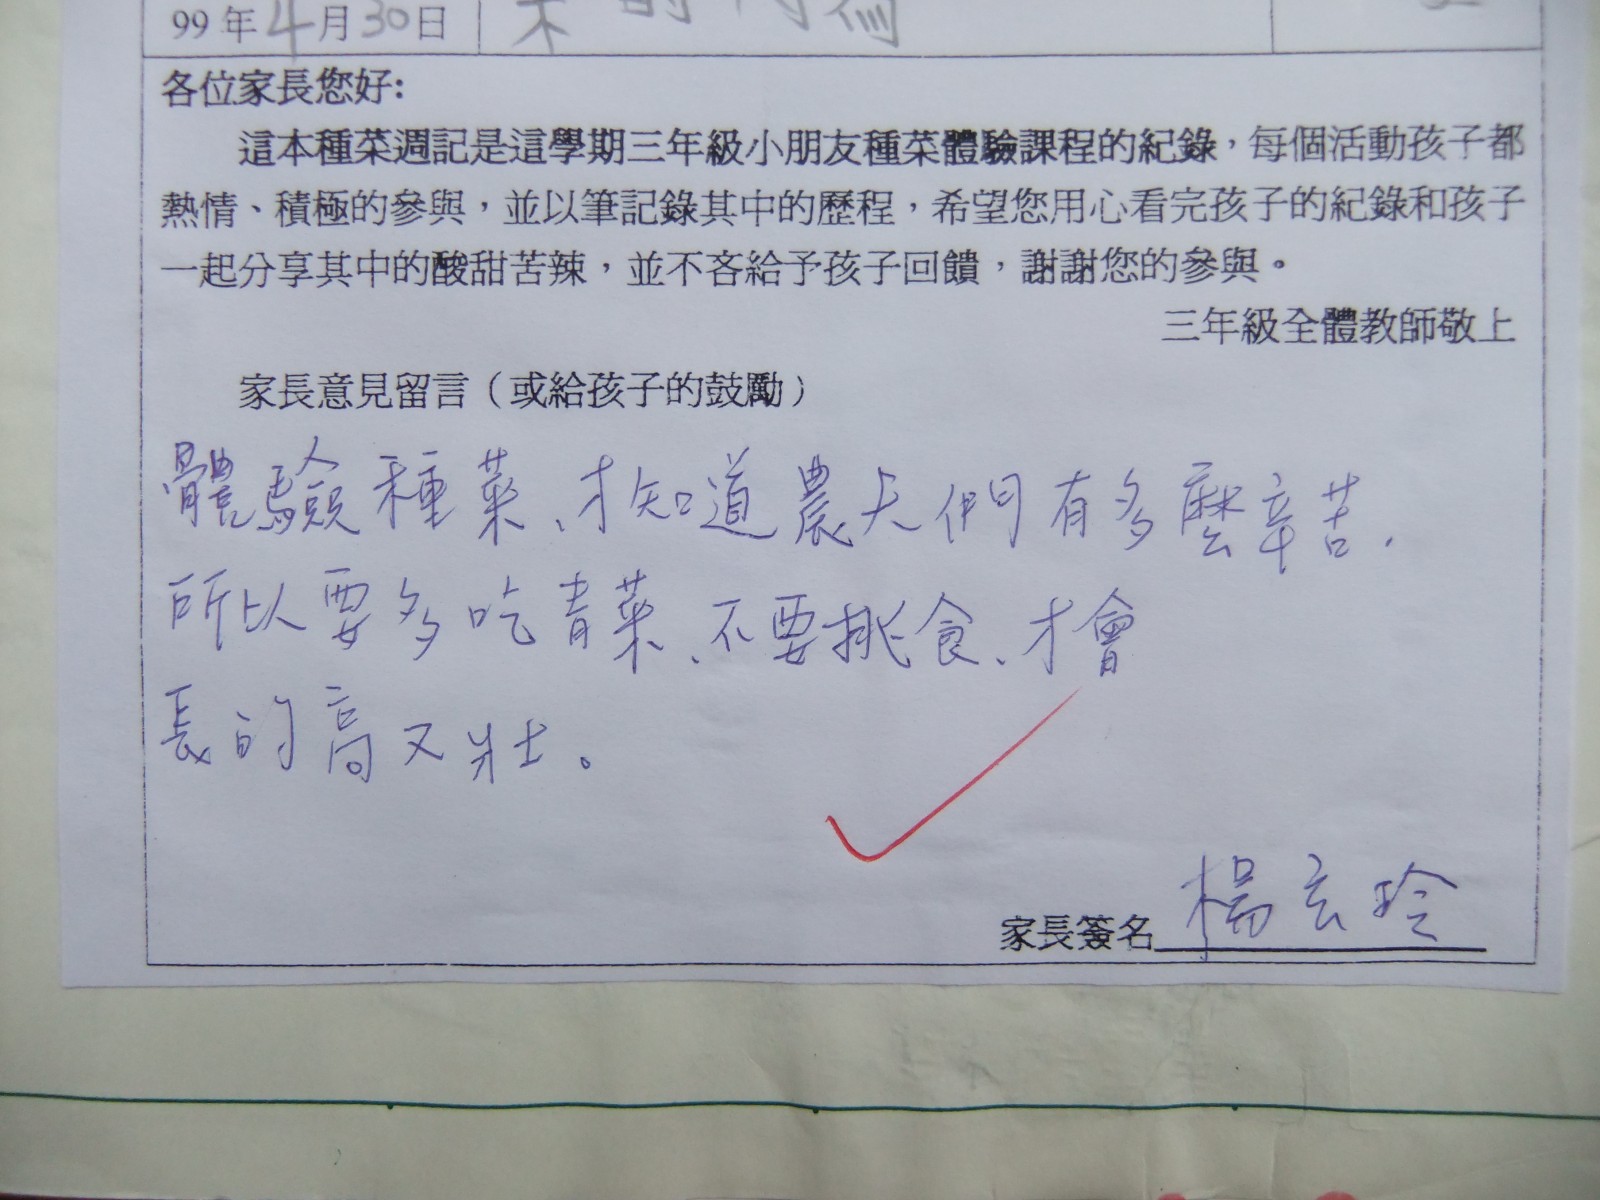 99年4月30日
各位家長您好:
這本種菜週記是這學期三年級小朋友種菜體驗課程的紀錄，每個活動孩子都
熱情、積極的參與，並以筆記錄其中的歷程，希望您用心看完孩子的紀錄和孩子
一起分享其中的酸甜苦辣，並不吝給予孩子回饋，謝謝您的參與。
三年級全體教師敬上
家長意見留言（或給孩子的鼓勵）
體驗種菜、才知道農夫們有多麼辛苦.
所以要多吃青菜、不要挑食、才會
長的高又壯。
家長簽名 楊玄玲